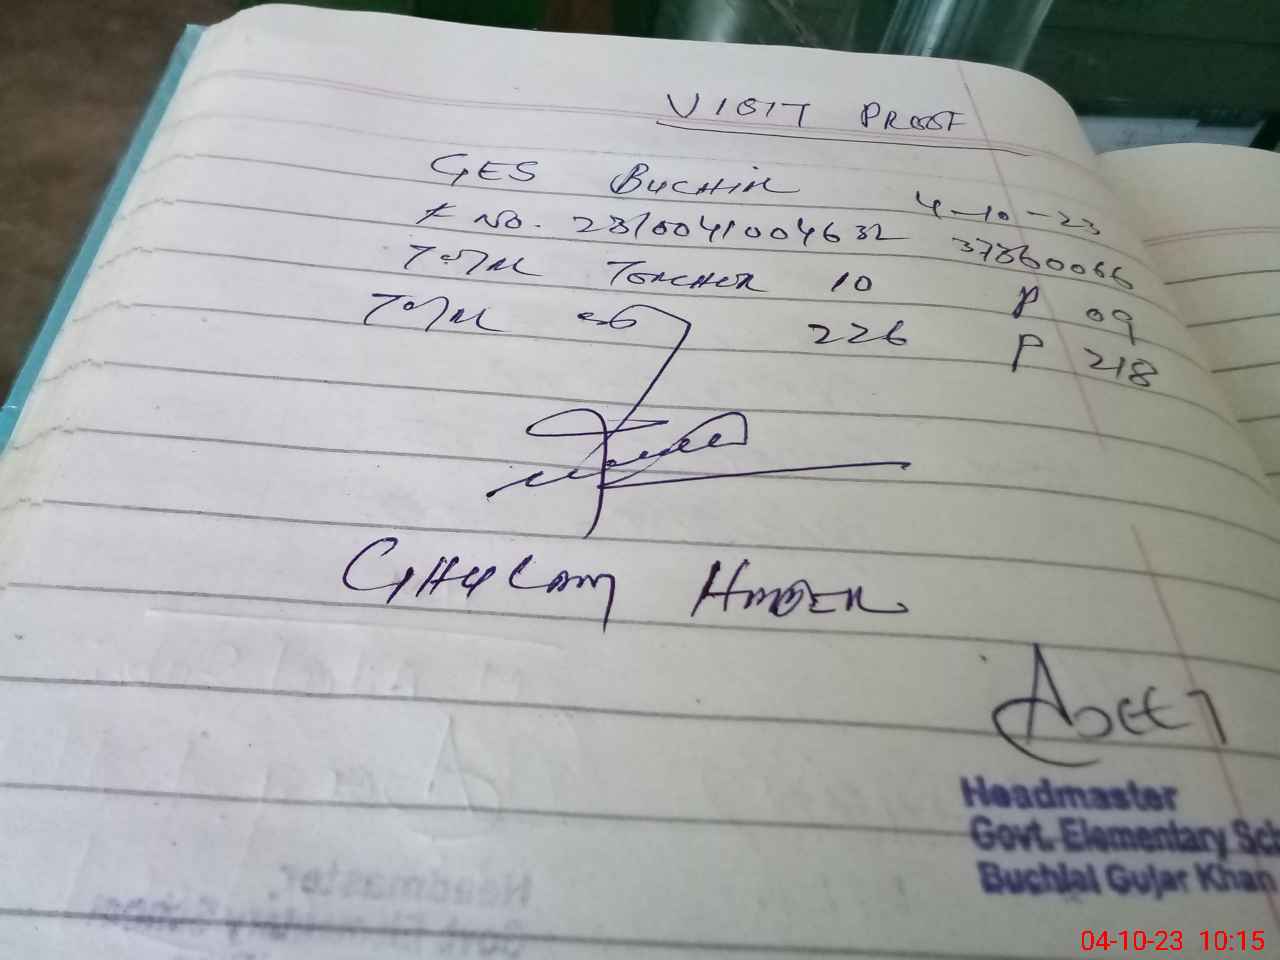 VISIT PROOF
GES Buchial 4-10-23
No. 28100410046 32 37360066
Total Teacher 10 P 09
Total 226 P 218
GHULAM HAIDER
Headmaster
Govt. Elementary Sch
Buchial Gujar Khan
04-10-23 10:15